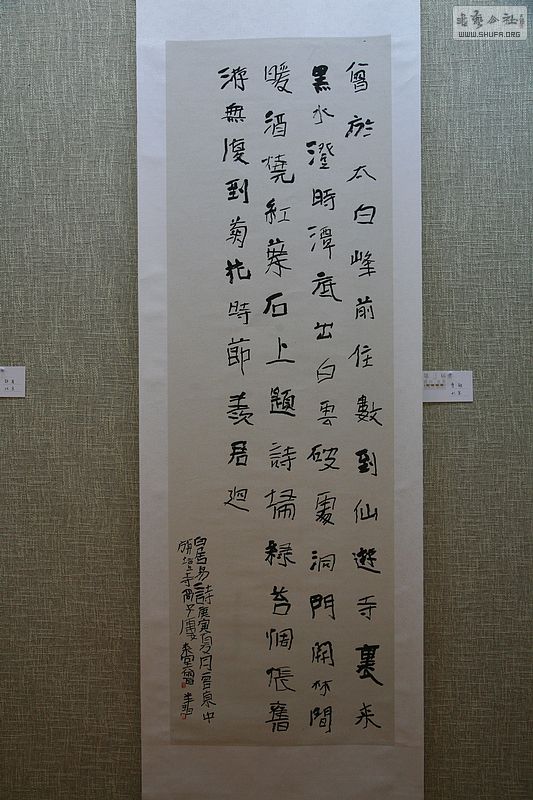 書藝公社
WWW.SHUFA.ORG
曾於太白峰前住數到仙遊寺裏来
黑水澄時潭底出白雲破處洞門開林間
暖酒燒紅葉石上題詩埽緑苔惆悵舊
游無復到菊花時節羨君迴
白居易詩庚寅夏月